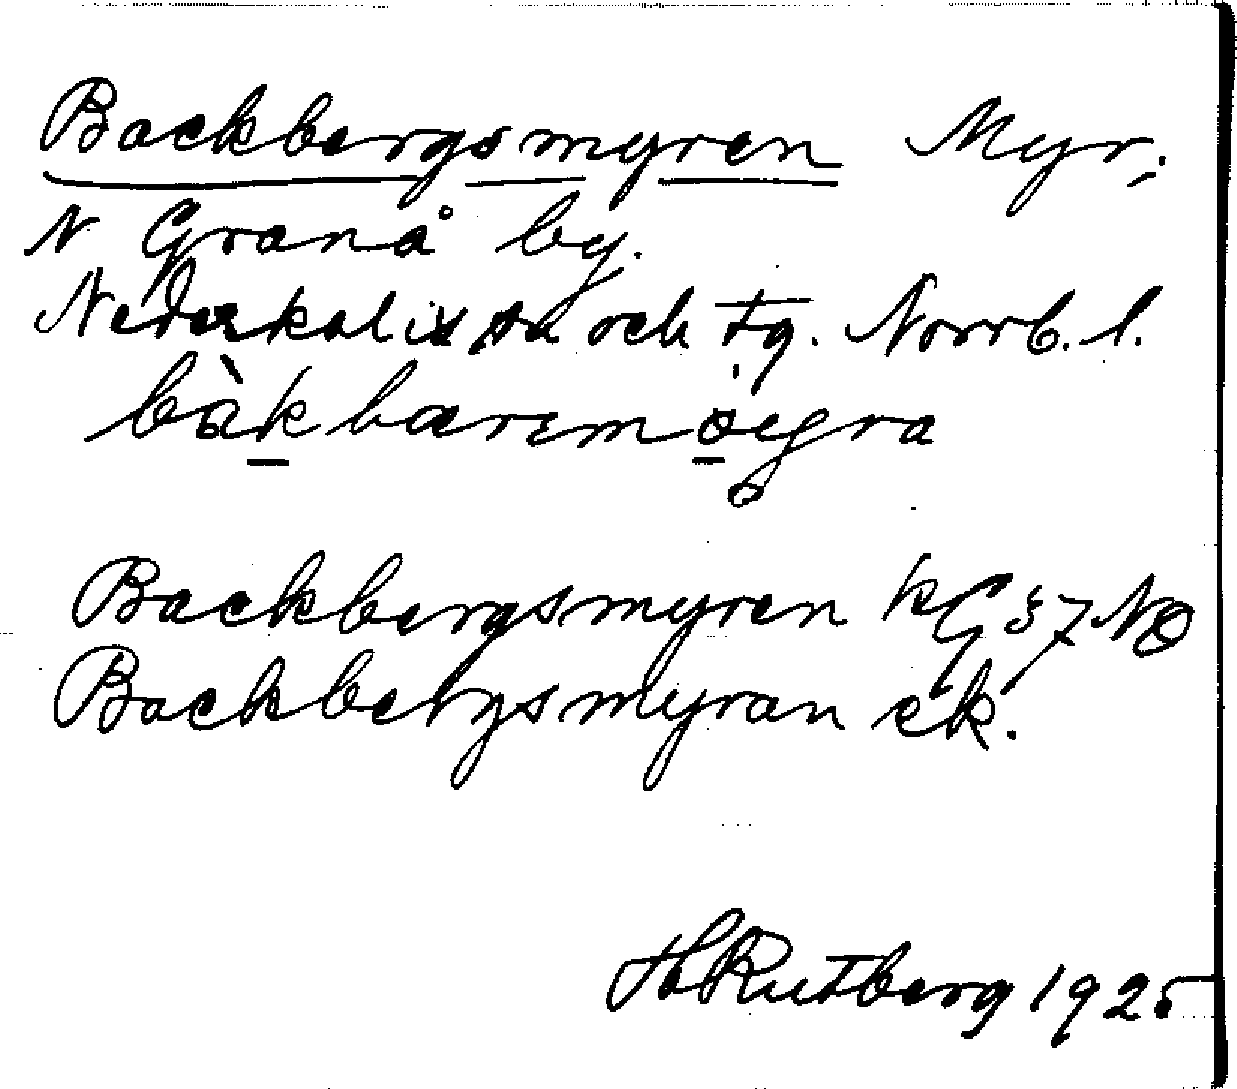 Backbergsmyren Myr;
N Granå by.
Nederkalix sn och tg. Norrb. l.
bàkbæremøegra
Backbergsmyren kG 87 NO
Backbergsmyran ek.
Rutberg 1925